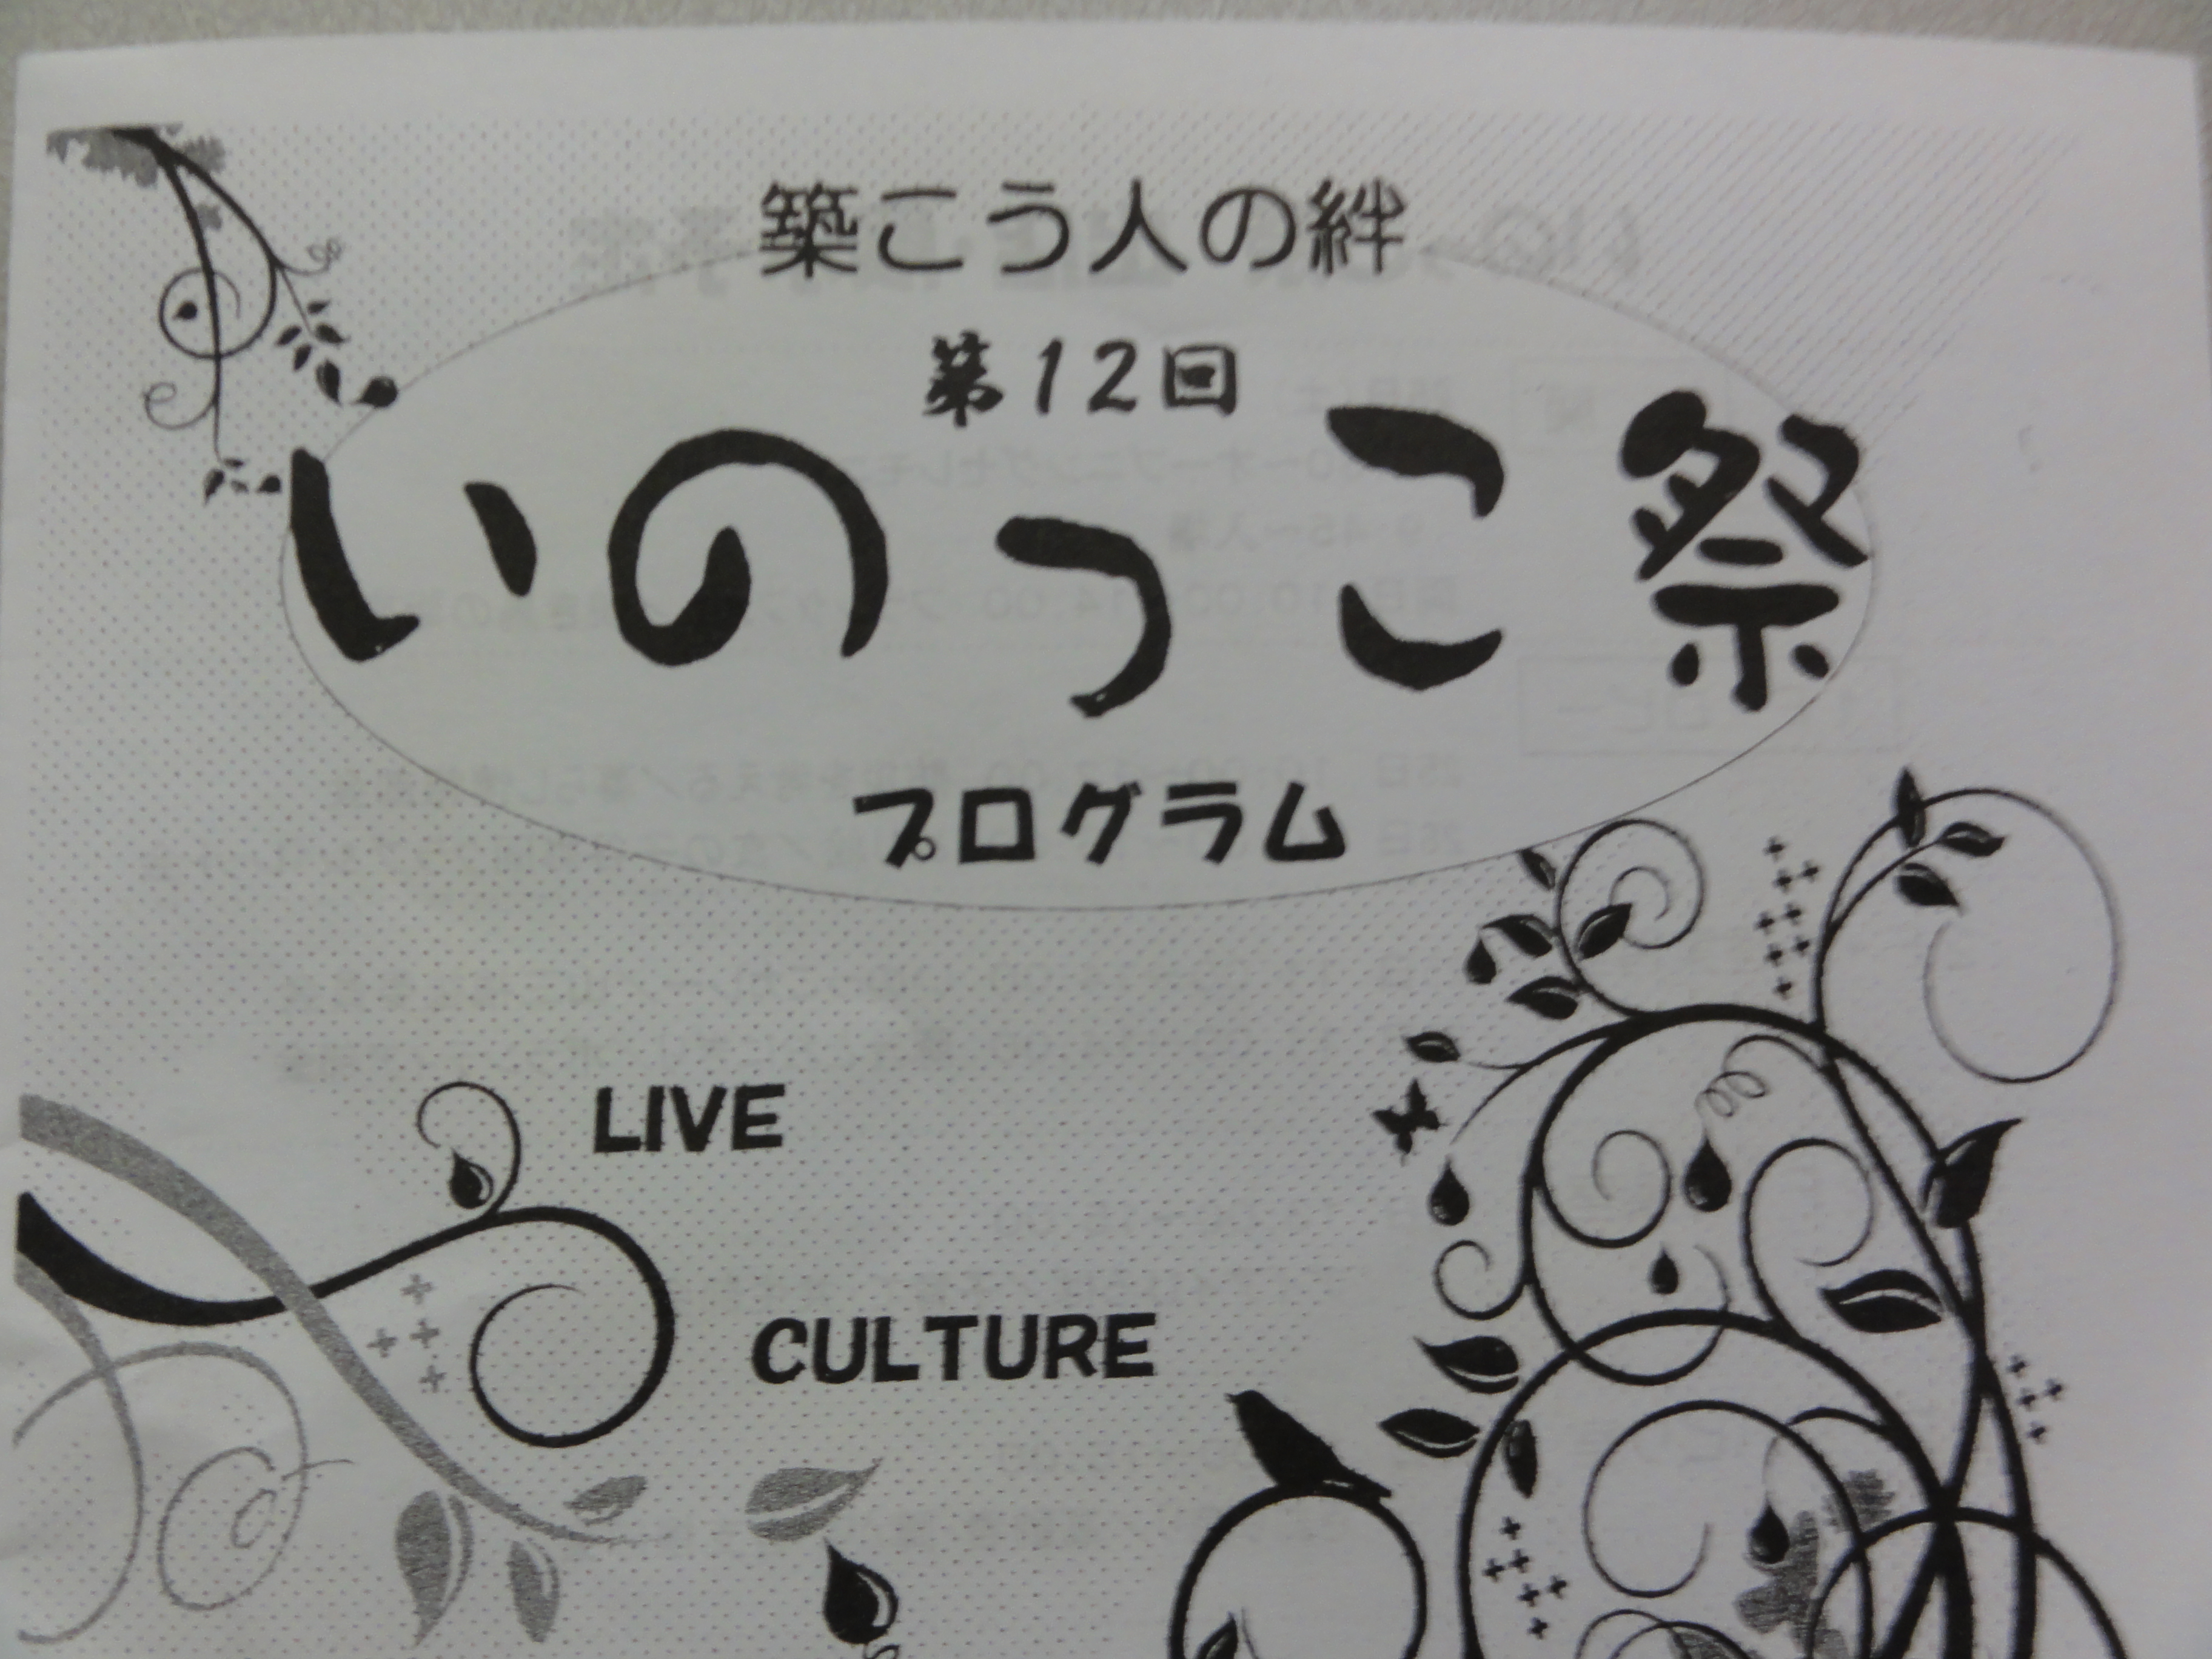 築こう人の絆
第12回
いのっこ祭
プログラム
LIVE
CULTURE